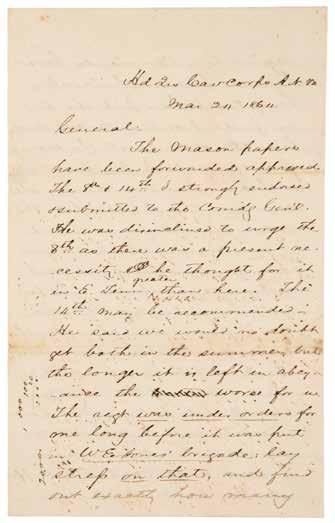 Hd Qrs Cav Corps A. N. Va
Mar 24 1864
General:
The Mason papers
have been forwarded approved.
The 8th & 14th I strongly endorsed
& submitted to the Comdg Genl.
He was disinclined to urge the
8th as there was a present ne-
cessity he thought for it
greater
in E. Tenn than here. The
14th may be accommended.
He said we would no doubt
get both in the summer but
the longer it is left in abey-
ance the worse for us
The regt was under orders for
me long before it was put
in W E Jones' brigade: lay
stress on that, and find
out exactly how many